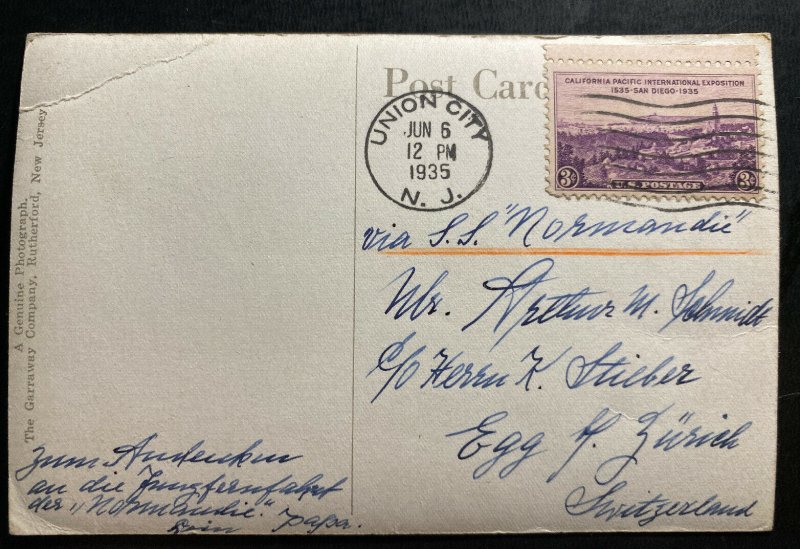 Post Card
CALIFORNIA PACIFIC INTERNATIONAL EXPOSITION
1535-SAN DIEGO-1935
3¢ U.S. POSTAGE 3¢
UNION CITY
JUN 6
12 PM
1935
N. J.
via S.S. "Normandie"
Mr. Arthur M. Schmidt
c/o Herrn K. Stieber
Egg
Zürich
Switzerland
A Genuine Photograph.
The Garraway Company, Rutherford, New Jersey
Zum Andenken
an die Jungfernfahrt
der „Normandie".
Dein Papa.